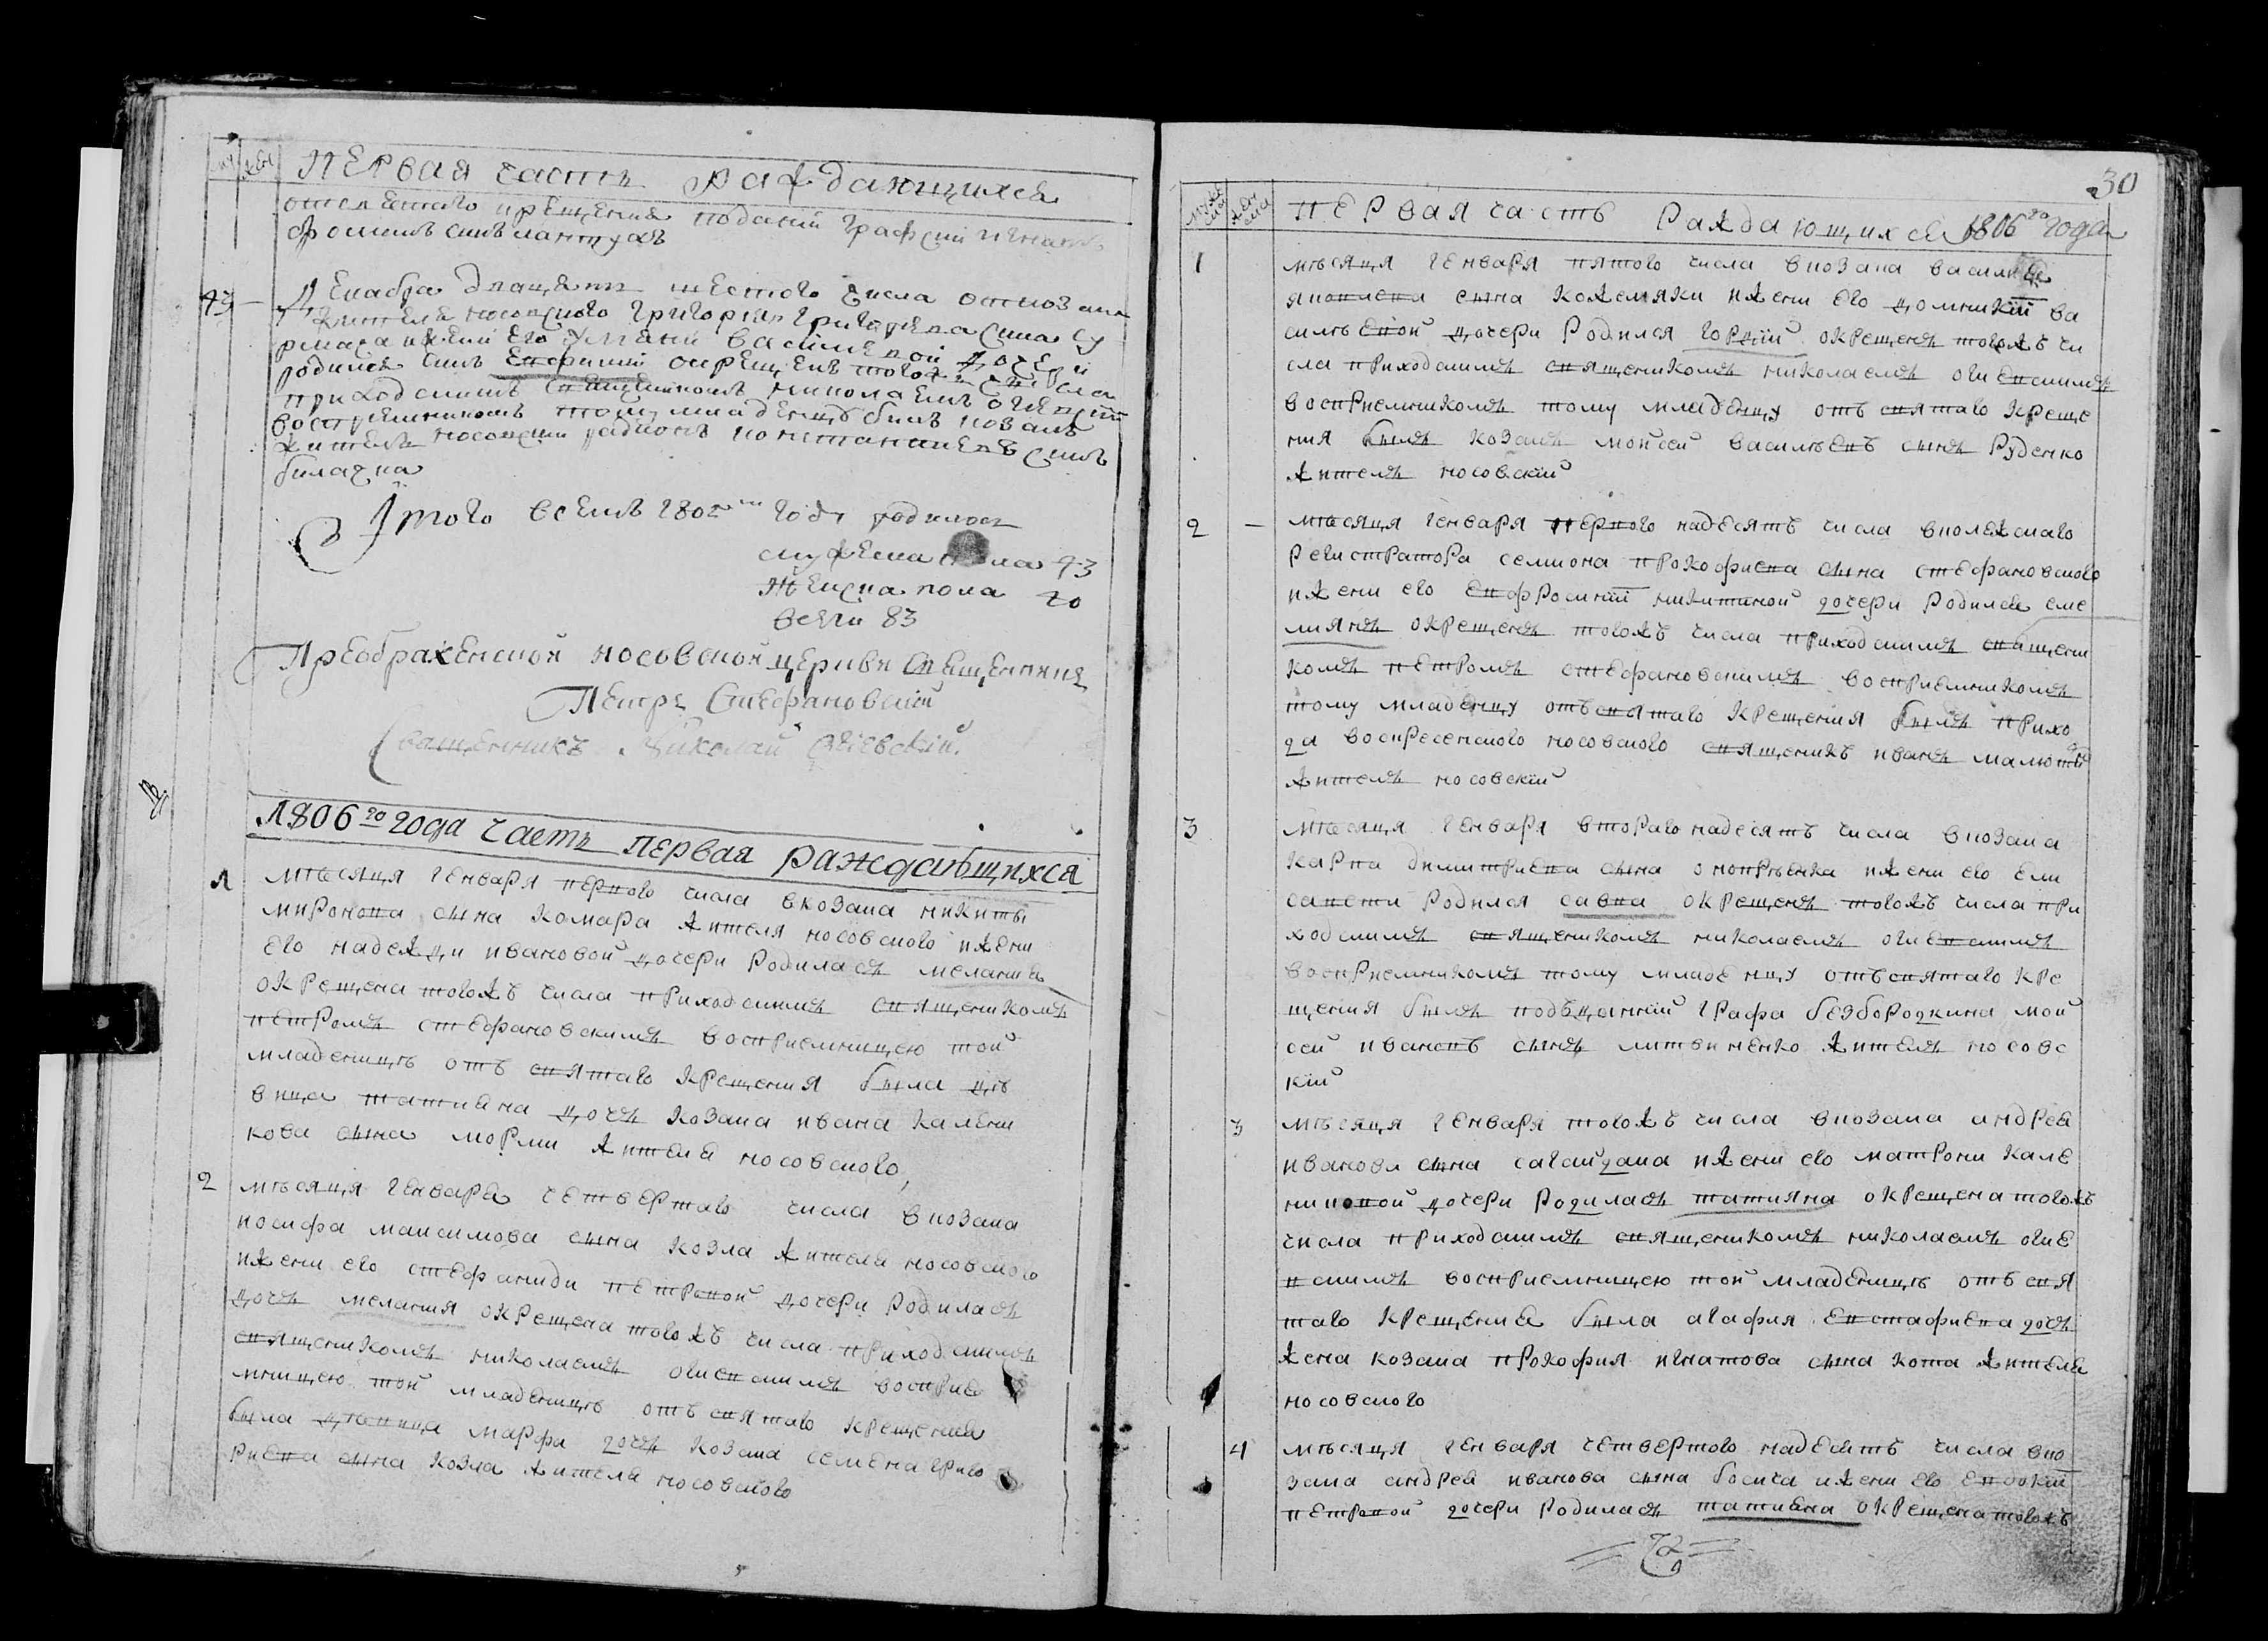 Первая часть раждающихся
отсвятаго крещения поданий графский игнатъ
фоминъ синъ лантухъ
43 Декабра двацять шестого числа откозака
жителя носовского Григория Григориева сина
рмаса ижени его Уляни василиевой дочери
родился синъ Евфимий окрещенъ тогожъ числа
приходскимъ священикомъ николаемъ огиевскимъ
восприемникомъ тому младенцѣ билъ козакъ
житель носовский родионъ константиневъ синъ
билачка
Итого всемъ 1805 годѣ родилось
мужеска пола 43
Женска пола 40
всего 83
Преображенской носовской церкви священникъ
Петръ Стефановский
Священникъ Николай Огіевскій.
1806го года часть первая раждающихся
1 мѣсяця генваря первого числа вкозака никиты
миронова сына комара жителя носовского ижени
его надежди ивановой дочери родилась мелания
окрещена тогожъ числа приходскимъ священикомъ
петромъ стефановскимъ восприемницею той
младеницѣ отъ святаго крещения была дѣ
вица татияна дочь козака ивана калени
кова сына морми жителя носовского,
2 мѣсяця генваря четвертаго числа вкозака
иосифа максимова сына козла жителя носовского
ижени его стефаниди петровой дочери родилась
дочь мелания окрещена тогожъ числа приходскимъ
священикомъ николаемъ огиевскимъ восприе
мницею той младеницѣ отъ святаго крещения
была дѣвица марфа дочь козака семена григо
риева сына козла жителя носовского
30
мужеска женска Первая часть Раждающихся 1806го года
1 мѣсяця генваря пятого числа вкозака василия
яковлева сына кожемяки ижени его домникіи ва
силѣевой дочери родился горъдій окрещенъ тогожъ чи
сла приходскимъ священикомъ николаемъ огиевскимъ
восприемникомъ тому младенцу отъ святаго креще
ния былъ козакъ мойсей василѣевъ сынъ руденко
житель носовскій
2 мѣсяця генваря первого надесять числа вколежскаго
регистратора семиона прокофиева сына стефановского
ижени его евфросиніи никитиной дочери родился еме
лиянъ окрещенъ тогожъ числа приходскимъ священи
комъ петромъ стефановскимъ восприемникомъ
тому младенцу отъ святаго крещения былъ прихо
да воскресенского носовского священикъ иванъ малютъ
житель носовскій
3 мѣсяця генваря второго надесять числа вкозака
карпа димитриева сына онопрѣенка ижени его ели
савети родился савва окрещенъ тогожъ числа при
ходскимъ священикомъ николаемъ огиевскимъ
восприемникомъ тому младенцу отъ святаго кре
щения былъ подъданній графа безбородкина мой
сей ивановъ сынъ литвиненко житель носовс
кій
3 мѣсяця генваря тогожъ числа вкозака андрея
иванова сына сагайдака ижени его матрони кале
никовой дочери родилась татияна окрещена тогожъ
числа приходскимъ священикомъ николаемъ огие
вскимъ восприемницею той младеницѣ отъ свя
таго крещения была агафия евстафиева дочь
жена козака прокофия игнатова сына кота жителя
носовского
4 мѣсяця генваря четвертого надесять числа вко
зака андрея иванова сына босика ижени его евдокіи
петровой дочери родилась татияна окрещена тогожъ